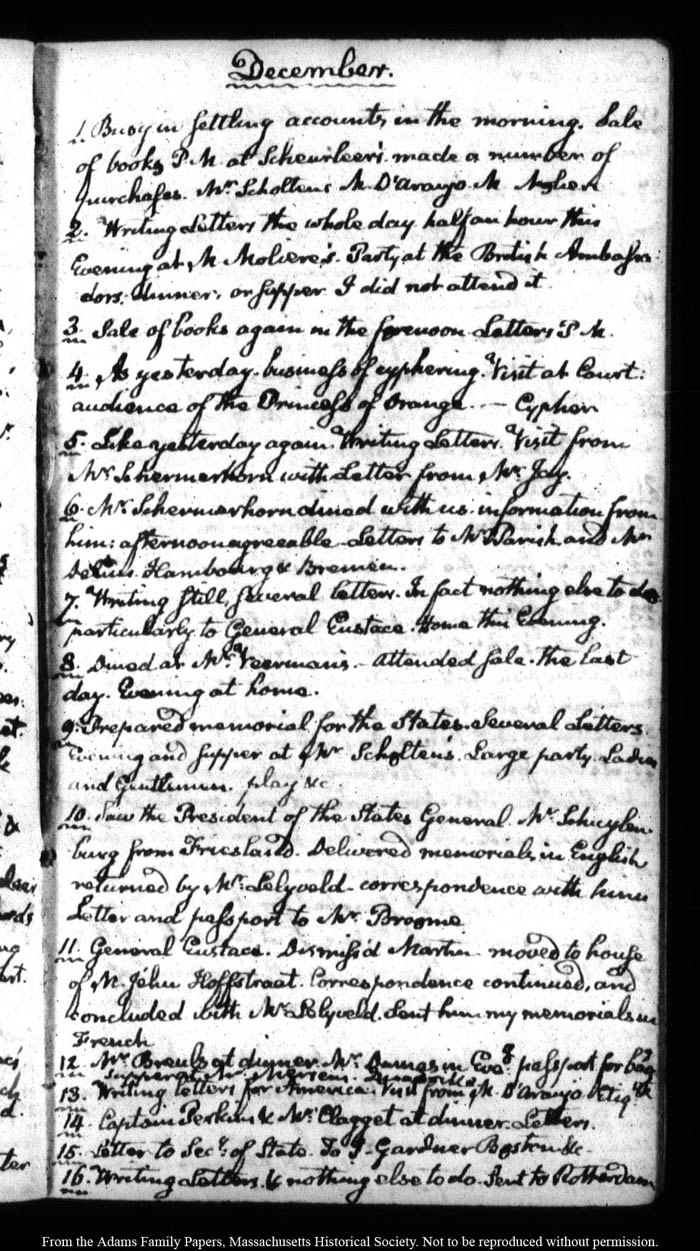 December.
1. Busy in settling accounts in the morning. Sale
of books P.M. at Scheurleer's. made a number of
purchases. Mr. Scholtens M. D'Araujo M.
2. Writing Letters the whole day. half an hour this
Evening at M. Moliere's. Party at the British Ambassa-
dors. dinner, or supper I did not attend it
3. Sale of books again in the forenoon Letters P.M.
4. As yesterday. business of cyphering. Visit at Court:
audience of the Princess of Orange. — Cypher
5. Like yesterday again. Writing Letters. Visit from
Mr. Schermerhorn with Letter from Mr. Jay.
6. Mr. Schermerhorn dined with us. information from
him: afternoon agreeable. Letters to Mr. Parish and Mr.
Delius. Hambourg & Bremen.
7. Writing still several letters. In fact nothing else to do
particularly to General Eustace. Home this Evening.
8. Dined at Mr. Veerman's. attended sale. the last
day. Evening at home.
9. Prepared memorial for the States. Several Letters.
Evening and supper at Mr. Scholten's. Large party. Ladies
and Gentlemen. play &c.
10. Saw the President of the States General. Mr. Schuylen-
burg from Friesland. Delivered memorials, in English
returned by Mr. Lelyveld. correspondence with him
Letter and passport to Mr. Broome
11. General Eustace. Dismiss'd Martin moved to house
of M. Jéhu Hoffstraat. Correspondence continued, and
concluded with Mr. Lelyveld. Sent him my memorials in
French
12. Mr. Breuls at dinner. Mr. Dumas in Eveg. passport for
Supper at Mr.
13. Writing letters for America. Visit from M. D'Araujo
14. Captain Perkins & Mr. Clagget at dinner. Letters.
15. Letter to Secy. of State. To J. Gardner Boston &c.
16. Writing Letters. & nothing else to do. Sent to Rotterdam
From the Adams Family Papers, Massachusetts Historical Society. Not to be reproduced without permission.